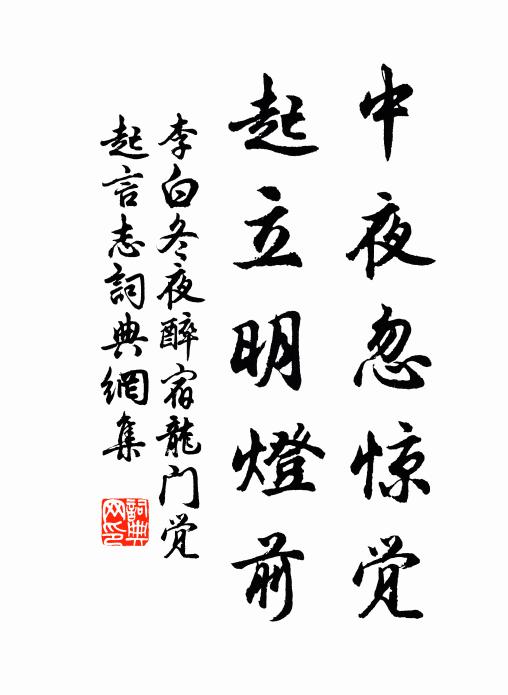 中夜忽惊觉
起立明燈前
李白冬夜醉宿龍门觉
起言志詞典網集
詞典网印